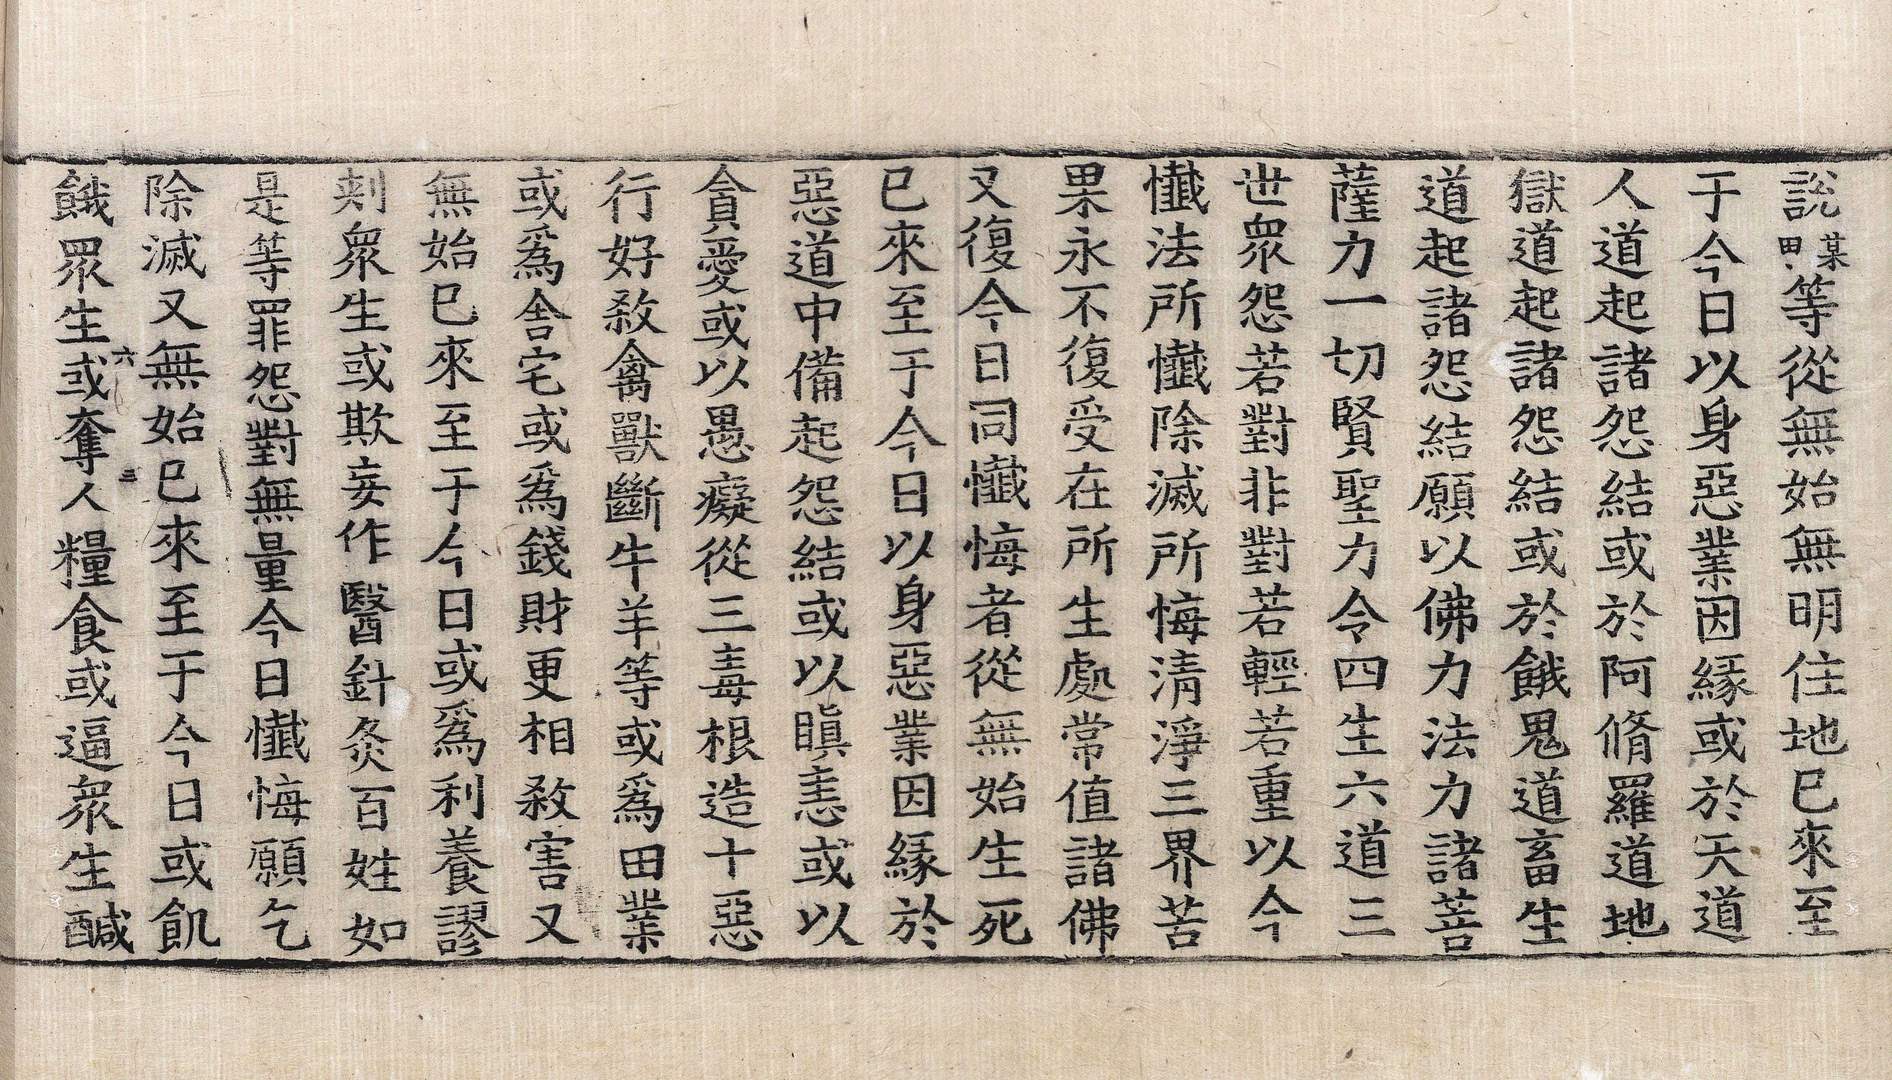 説某甲等從無始無明住地已來至
于今日以身惡業因縁或於天道
人道起諸怨結或於阿脩羅道地
獄道起諸怨結或於餓鬼道畜生
道起諸怨結願以佛力法力諸菩
薩力一切賢聖力令四生六道三
世衆怨若對非對若輕若重以今
懺法所懺除滅所悔清淨三界苦
果永不復受在所生處常值諸佛
又復今日同懺悔者從無始生死
已來至于今日以身惡業因縁於
惡道中備起怨結或以瞋恚或以
貪愛或以愚癡從三毒根造十惡
行好殺禽獸斷牛羊等或為田業
或為舍宅或為錢財更相殺害又
無始已來至于今日或為利養謬
刾衆生或欺妄作醫針灸百姓如
是等罪怨對無量今日懺悔願乞
除滅又無始已來至于今日或飢
餓眾生或奪人糧食或逼衆生醎
六
三